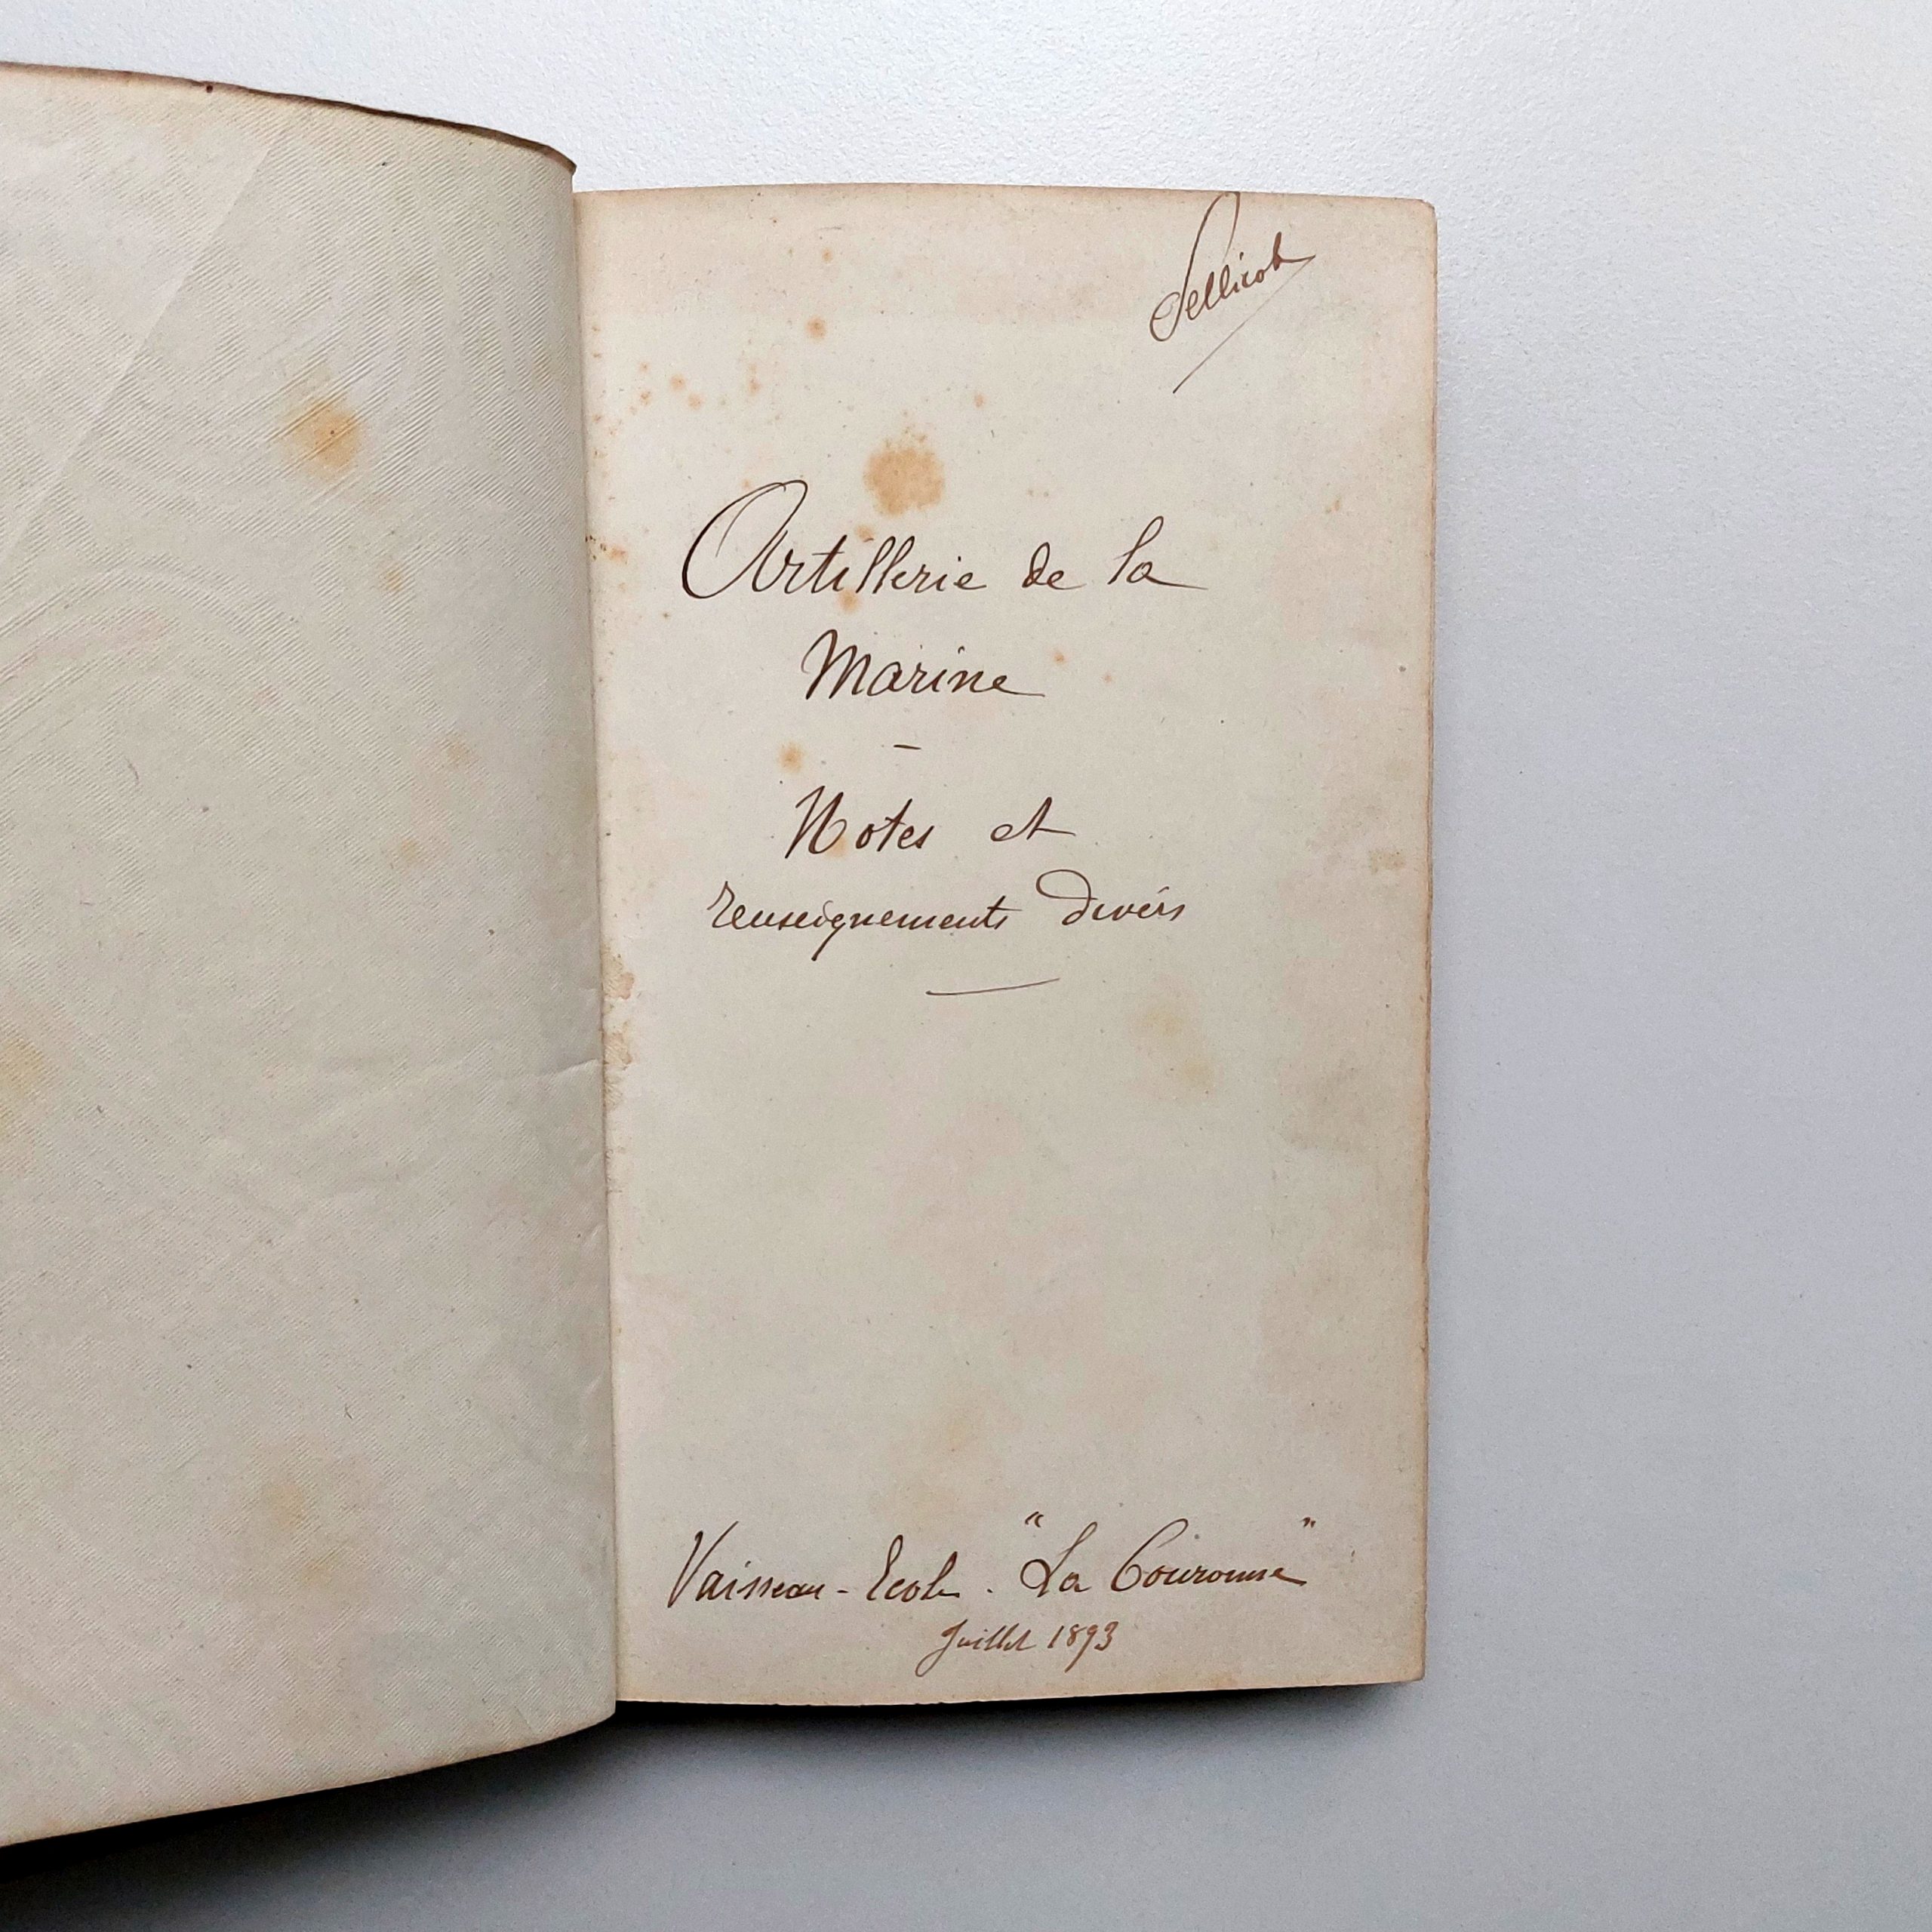 Sellicot
Artillerie de la
Marine
-
Notes et
renseignements divers
Vaisseau-Ecole. "La Couronne"
Juillet 1893